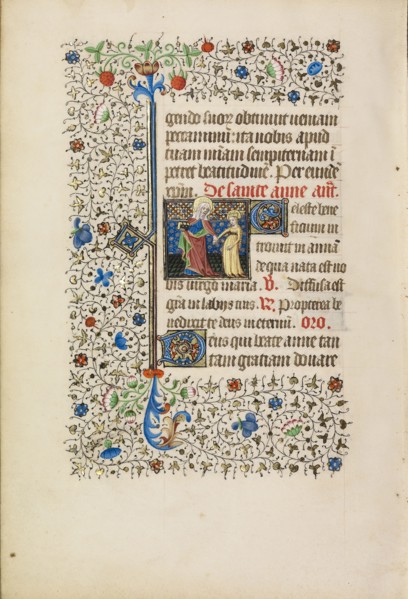 gendo suor obtinuit veniam
peccaminū: ita nobis apud
tuam miām sempiternam ī
petret beatitudinē. Per eundē
xpm̄. De sainte anne añt.
Celeste bene
ficium in
troivit in annā
de qua nata est no
bis virgo maria. V. Diffusa est
grā in labijs tuis. R. Propterea be
nedixit te deus in eternū. ORO.
Deus qui beate anne tan
tam gratiam donare